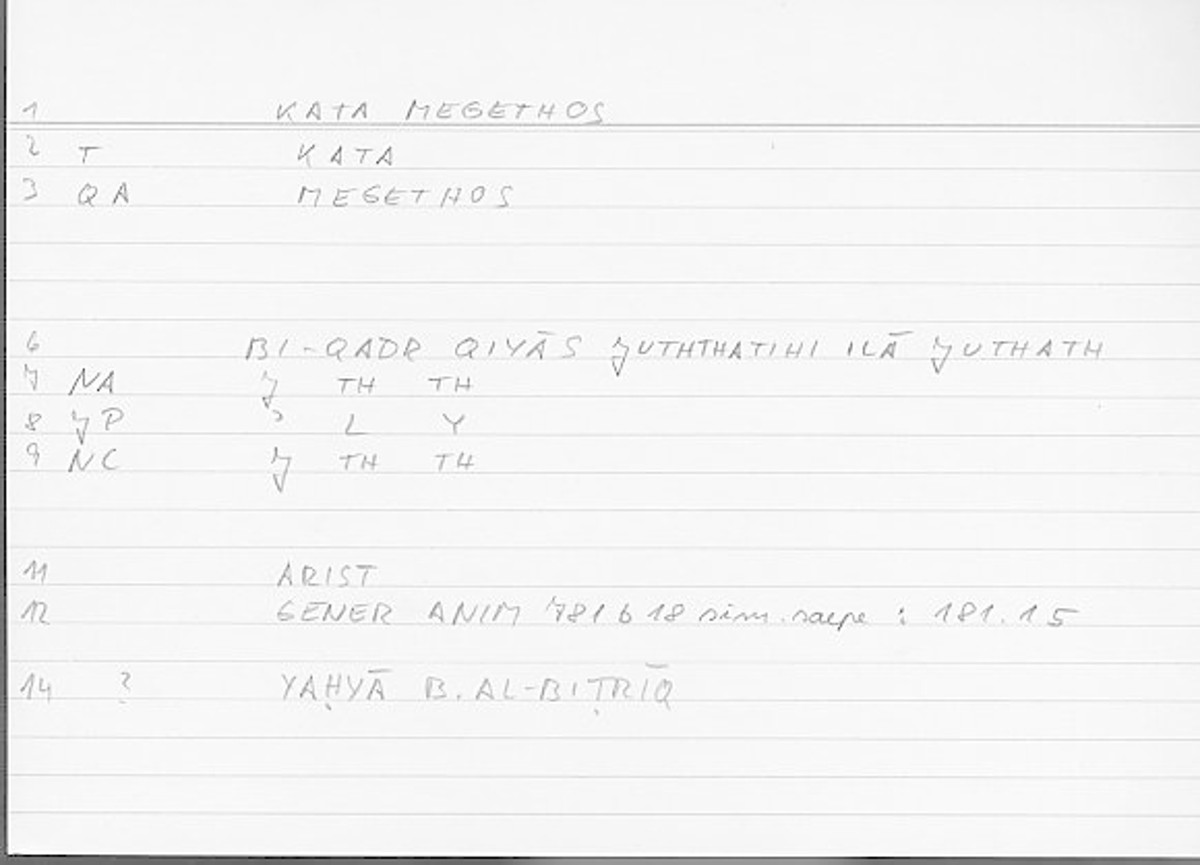 1 KATA MEGETHOS
2 T KATA
3 QA MEGETHOS
6 BI-QADR QIYĀS ǦUTHTHATIHI ILĀ ǦUTHATH
7 NA Ǧ TH TH
8 ǦP ʾ L Y
9 NC Ǧ TH TH
11 ARIST
12 GENER ANIM 781 b 18 sim. saepe : 181.15
14 ? YAḤYĀ B. AL-BIṬRĪQ